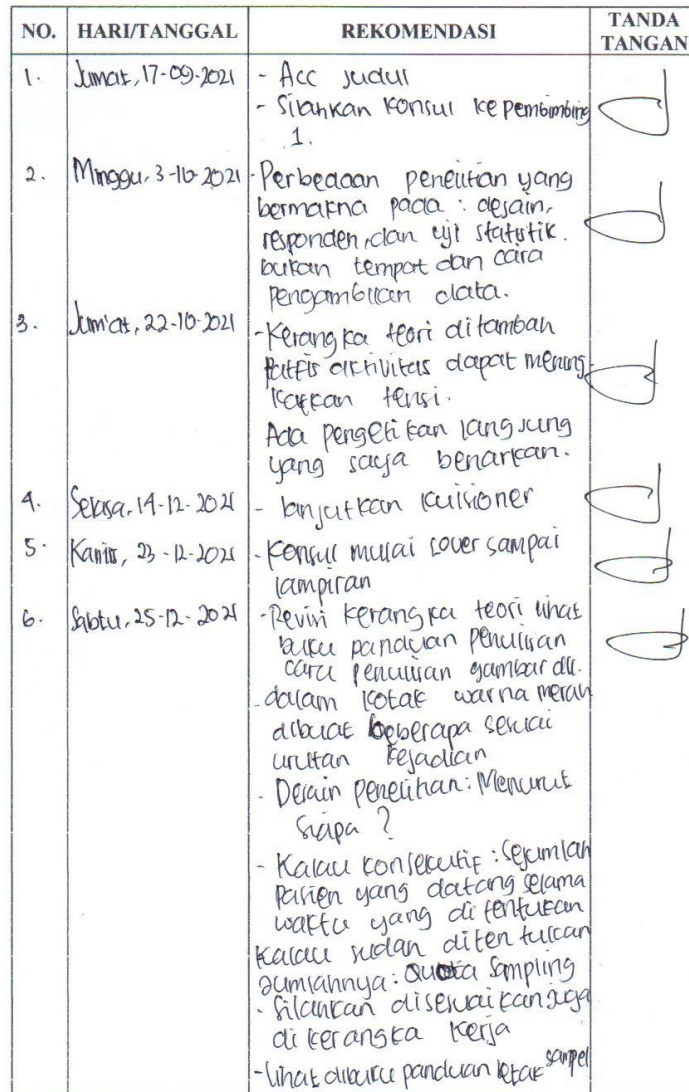 NO. HARI/TANGGAL REKOMENDASI TANDA TANGAN
1. Jumat, 17-09-2021 - Acc judul
- Silahkan konsul ke pembimbing
1.
2. Minggu, 3-10-2021 - Perbedaan penelitian yang
bermakna pada : desain,
responden, dan uji statistik.
bukan tempat dan cara
pengambilan data.
3. Jum'at, 22-10-2021 - Kerangka teori ditambah
aktivitas dapat mening-
katkan tensi.
Ada pengetikan langsung
yang saya benarkan.
4. Selasa, 14-12-2021 - lanjutkan kuisioner
5. Kamis, 23-12-2021 - Konsul mulai cover sampai
lampiran
6. Sabtu, 25-12-2021 - Revisi kerangka teori lihat
buku panduan penulisan
cara penulisan gambar dll.
- dalam kotak warna merah
dibuat beberapa sesuai
urutan kejadian
- Desain penelitian : Menurut
siapa ?
- Kalau konsekutif : Sejumlah
pasien yang datang selama
waktu yang di tentukan
Kalau sudah di tentukan
Jumlahnya : Quota Sampling
- Silahkan disesuaikan juga
di kerangka kerja
- Lihat dibuku panduan letak sampel